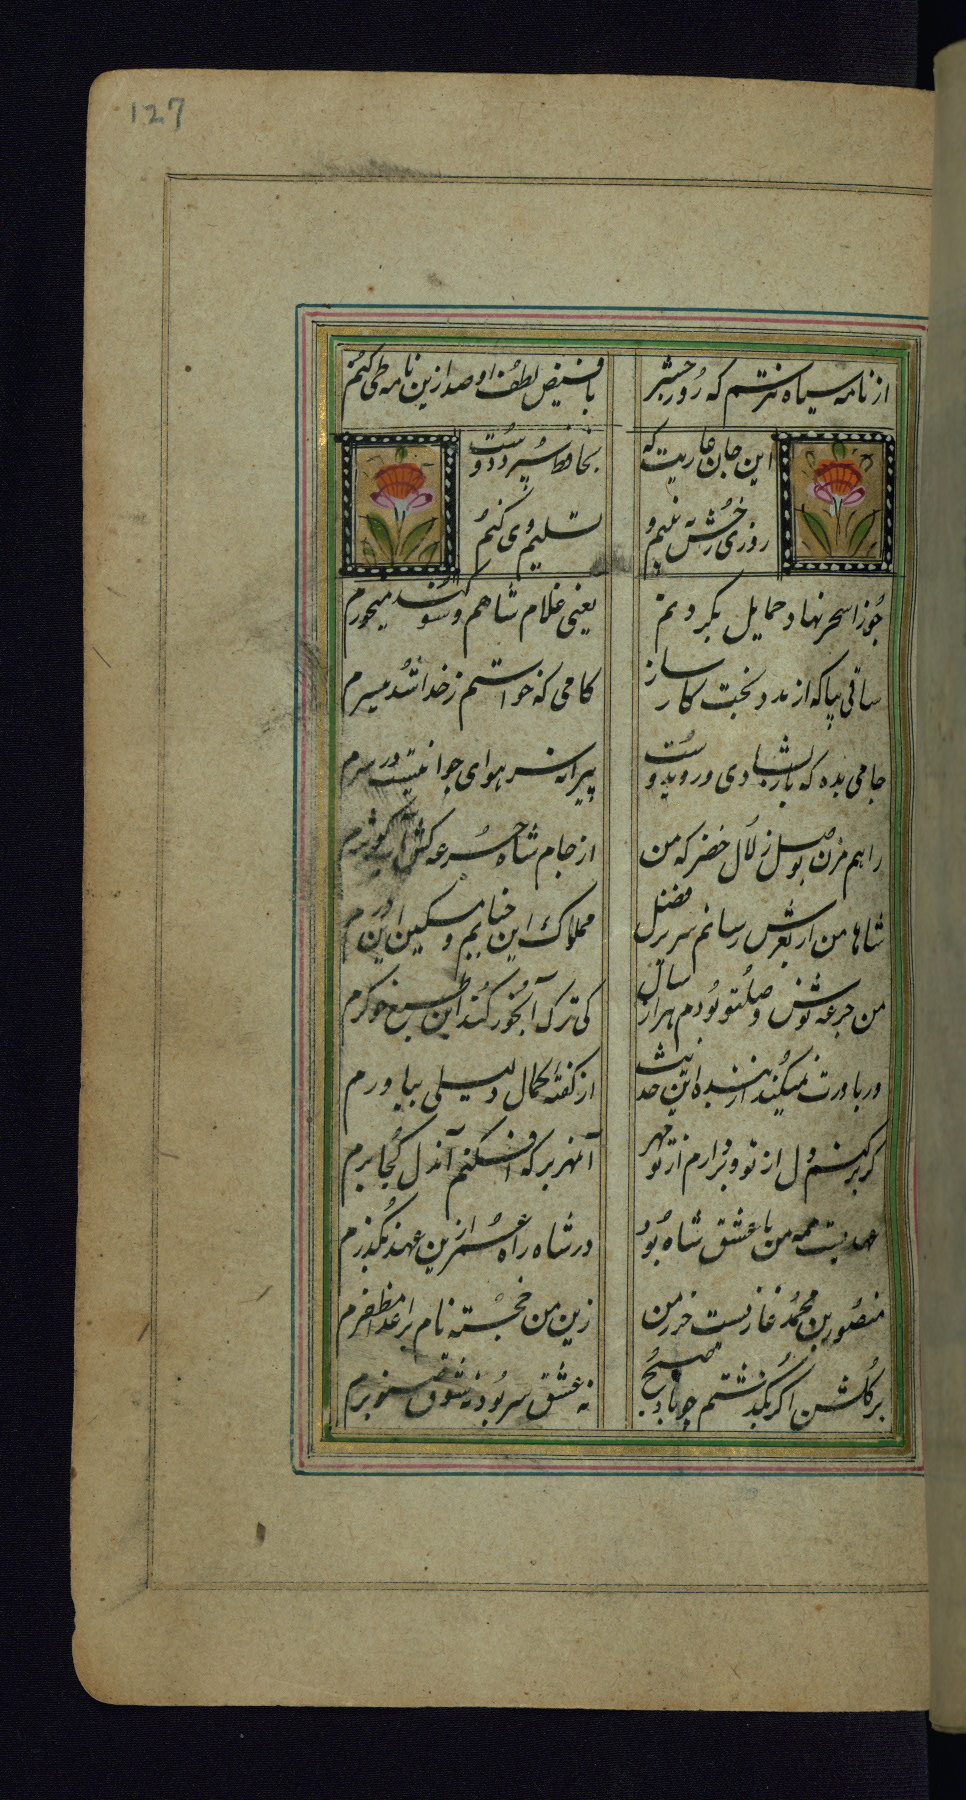 127
از نامه سیاه نترسم که روز حشر با فیض لطف او صد ازین نامه طی کنم
این جان عاریت که بحافظ سپرد دوست
روزی رخش ببینم و تسلیم وی کنم
جوزا سحر نهاد حمایل بکبر و نم یعنی غلام شاهم و سوگند میخورم
ساقی بیا که از مدد بخت کار ساز کامی که خواستم زخدا شد میسرم
جامی بده که باز بشادی و روی دوست پیرانه سر هوای جوانیست در سرم
راهم مزن بوصل زلال خضر که من از جام شاه جرعه کش آب کوثرم
شاها من ار بعرش رسانم سریر فضل مملوک این جنابم و مسکین این درم
من جرعه نوش وصل تو بودم هزار سال کی ترک آبخور کند این طبع خوکرم
ور باورت نمیکند از بنده این حدیث از گفته کمال دلیلی بیاورم
گر برکنم دل از تو و بردارم از تو مهر آنمهر بر که افکنم آندل کجا برم
عهدیست همه من با عشق شاه بود در شاه راه عمر ازین عهد نگذرم
منصور بن محمد غازیست حرز من زین من خجسته نام بر اعدا مظفرم
بر گلشن اگر بگذشتم چو باد صبح نه عشق سرو بود نه شوق صنوبرم